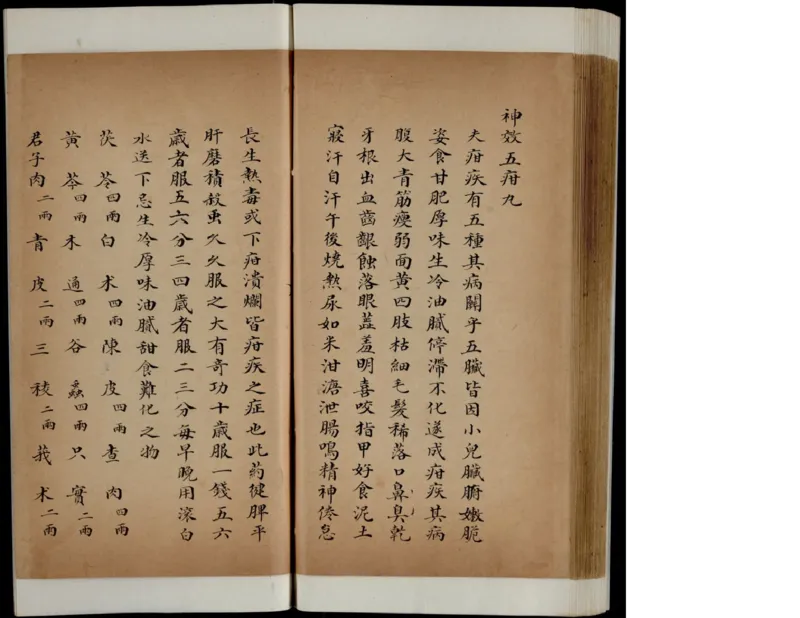 神效五疳丸
夫疳疾有五種其病關乎五臟皆因小兒臟腑嫩脆
姿食甘肥厚味生冷油膩停滯不化遂成疳疾其病
腹大青筋瘦弱面黃四肢枯細毛髮稀落口鼻臭乾
牙根出血齒齦蝕落眼盖羞明喜咬指甲好食泥土
寢汗自汗午後燒熱尿如米泔溏泄腸鳴精神倦怠
長生熱毒或下疳潰爛皆疳疾之症也此药健脾平
肝磨積殺虫久久服之大有奇功十歲服一錢五六
歲者服五六分三四歲者服二三分每早晚用滾白
水送下忌生冷厚味油膩甜食難化之物
茯苓四兩白术四兩陳皮四兩查肉四兩
黃芩四兩木通四兩谷虫四兩只實二兩
君子肉二兩青皮二兩三稜二兩莪术二兩